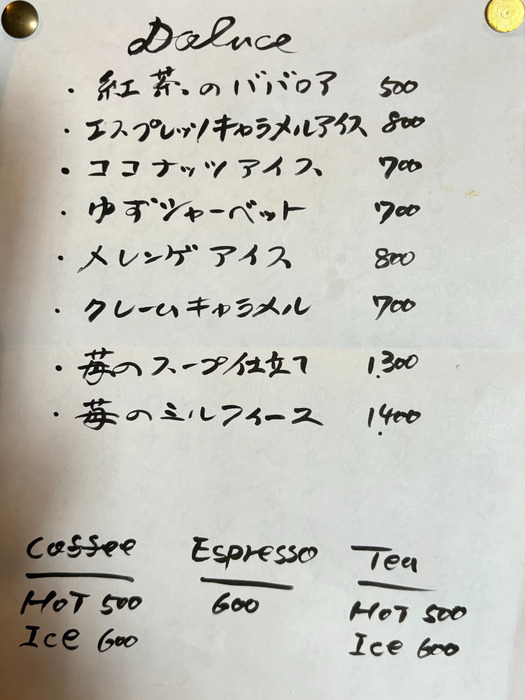 Doluce
・紅茶のババロア 500
・エスプレッソキャラメルアイス 800
・ココナッツアイス 700
・ゆずシャーベット 700
・メレンゲアイス 800
・クレームキャラメル 700
・苺のスープ仕立て 1,300
・苺のミルフィーユ 1,400
Coffee Espresso Tea
HOT 500 600 HOT 500
Ice 600 Ice 600